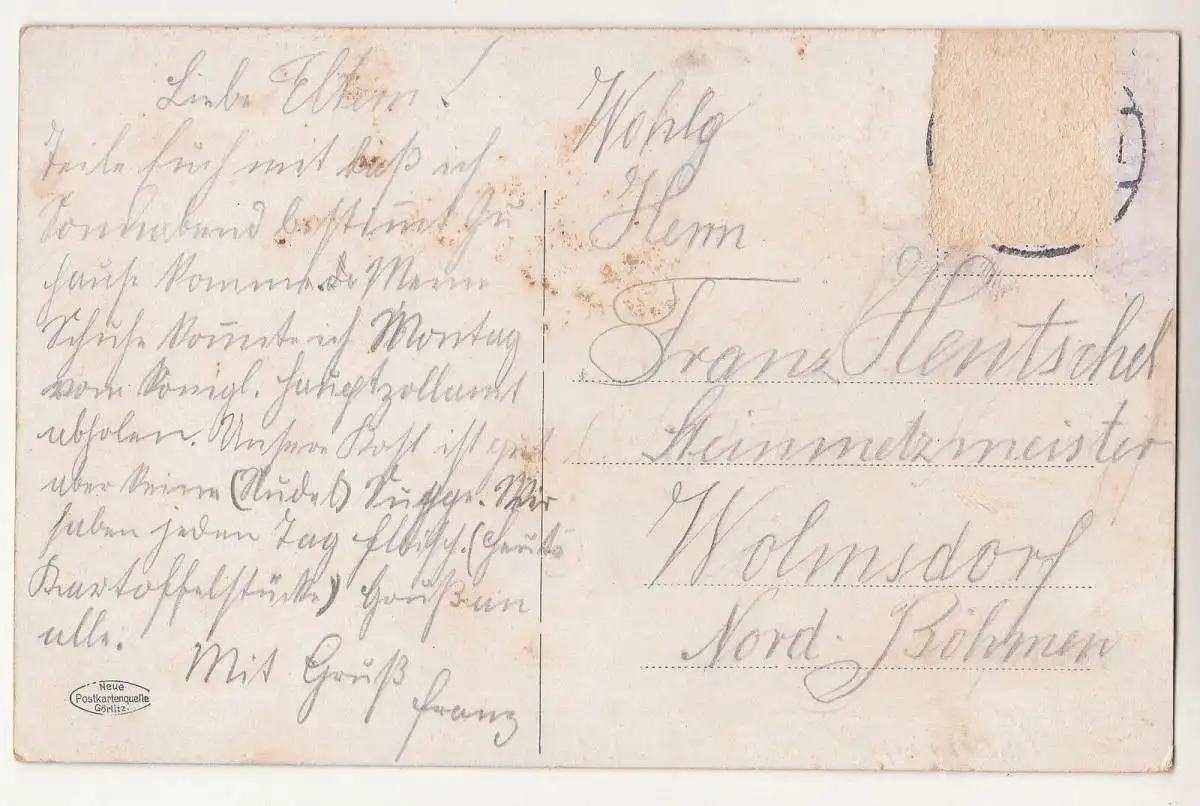 Liebe Eltern!
Teile Euch mit daß ich
Sonnabend bestimt zu
hause komme. Meine
Schuhe komte ich Montag
vom Königl. Hauptzollamt
abholen. Unsere Kost ist gut
aber keine (Nudel) Suppe. Wir
haben jeden Tag Fleisch. (heute
Kartoffelstücke) Gruß an
alle.
Mit Gruß
Franz
Neue
Postkartenquelle
Görlitz.
Wohlg
Herrn
Franz Hentschel
Steinmetzmeister
Wolmsdorf
Nord. Böhmen